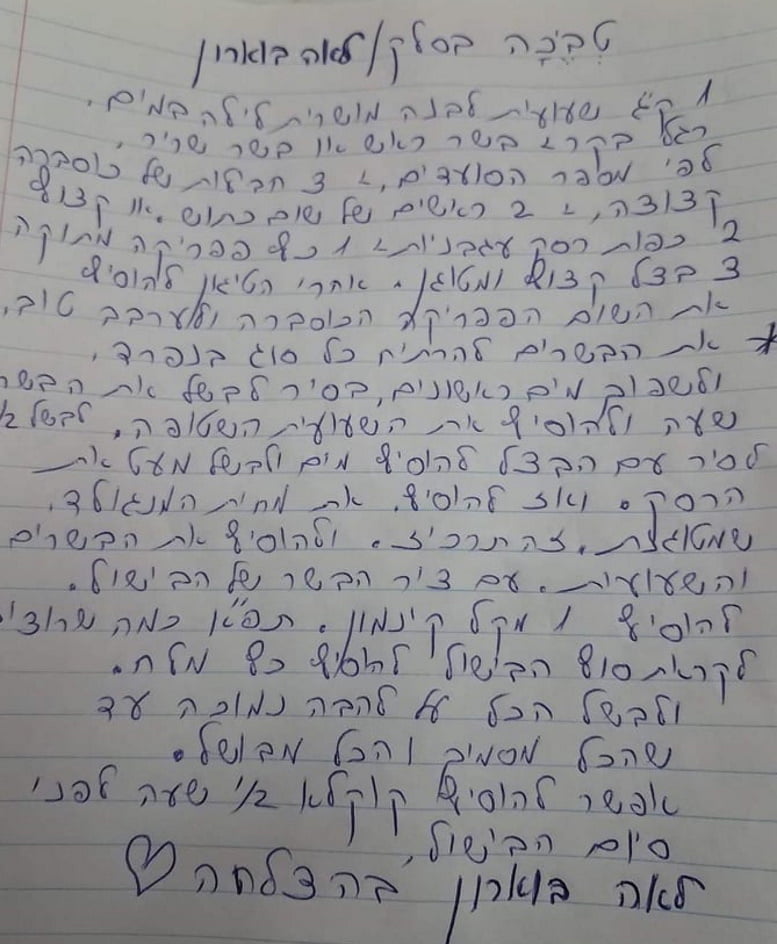 טְבֶּכָה בסלק / לאה בוארון
1 ק"ג שעועית לבנה מושרית לילה במים.
רגל בקר, בשר ראש או בשר שריר,
לפי מספר הסועדים, 3 חבילות של כוסברה
קצוצה, 2 ראשים של שום כתוש או קצוץ
2 כפות רסק עגבניות, 1 כף פפריקה מתוקה
3 בצל קצוץ ומטוגן. אחרי הטיגון להוסיף
את השום הפפריקה הכוסברה ולערבב טוב.
* את הבשרים להרתיח כל סוג בנפרד,
ולשפוך מים ראשונים, בסיר לבשל את הבשר
שעה ולהוסיף את השעועית השטופה. לבשל 1/2
לסיר עם הבצל להוסיף מים ולבשל מעט את
הרסק. ואז להוסיף את מחית המנגולד.
שמטוגנת. זה תרכיז. ולהוסיף את הבשרים
והשעועית. עם ציר הבשר של הבישול.
להוסיף 1 מקל קינמון. תפו"א כמה שרוצים
לקראת סוף הבישול להוסיף כף מלח.
ולבשל הכל על להבה נמוכה עד
שהכל מסמיך והכל מבושל.
אפשר להוסיף קוקלא 1/2 שעה לפני
סיום הבישול,
לאה בוארון בהצלחה ♡